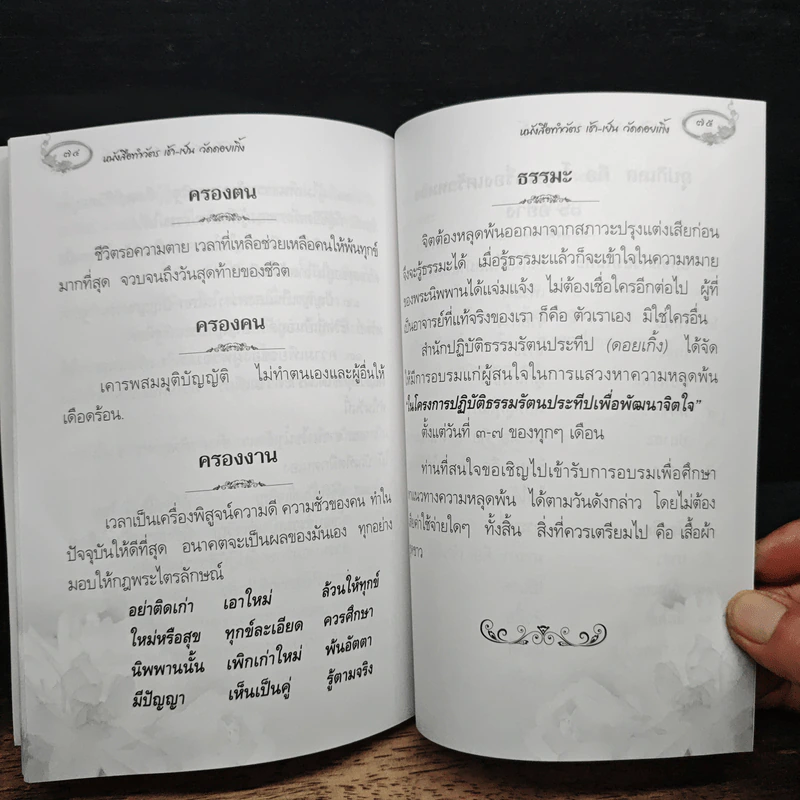 ๗๔
หนังสือทำวัตร เช้า-เย็น วัดดอยเกิ้ง
ครองตน
ชีวิตรอความตาย เวลาที่เหลือช่วยเหลือคนให้พ้นทุกข์
มากที่สุด จวบจนถึงวันสุดท้ายของชีวิต
ครองคน
เคารพสมมุติบัญญัติ ไม่ทำตนเองและผู้อื่นให้
เดือดร้อน.
ครองงาน
เวลาเป็นเครื่องพิสูจน์ความดี ความชั่วของคน ทำใน
ปัจจุบันให้ดีที่สุด อนาคตจะเป็นผลของมันเอง ทุกอย่าง
มอบให้กฎพระไตรลักษณ์
อย่าติดเก่า เอาใหม่ ล้วนให้ทุกข์
ใหม่หรือสุข ทุกข์ละเอียด ควรศึกษา
นิพพานนั้น เพิกเก่าใหม่ พ้นอัตตา
มีปัญญา เห็นเป็นคู่ รู้ตามจริง
๗๕
หนังสือทำวัตร เช้า-เย็น วัดดอยเกิ้ง
ธรรมะ
จิตต้องหลุดพ้นออกมาจากสภาวะปรุงแต่งเสียก่อน
จึงจะรู้ธรรมะได้ เมื่อรู้ธรรมะแล้วก็จะเข้าใจในความหมาย
ของพระนิพพานได้แจ่มแจ้ง ไม่ต้องเชื่อใครอีกต่อไป ผู้ที่
เป็นอาจารย์ที่แท้จริงของเรา ก็คือ ตัวเราเอง มิใช่ใครอื่น
สำนักปฏิบัติธรรมรัตนประทีป (ดอยเกิ้ง) ได้จัด
ให้มีการอบรมแก่ผู้สนใจในการแสวงหาความหลุดพ้น
"ในโครงการปฏิบัติธรรมรัตนประทีปเพื่อพัฒนาจิตใจ"
ตั้งแต่วันที่ ๓-๗ ของทุกๆ เดือน
ท่านที่สนใจขอเชิญไปเข้ารับการอบรมเพื่อศึกษา
แนวทางความหลุดพ้น ได้ตามวันดังกล่าว โดยไม่ต้อง
ค่าใช้จ่ายใดๆ ทั้งสิ้น สิ่งที่ควรเตรียมไป คือ เสื้อผ้า